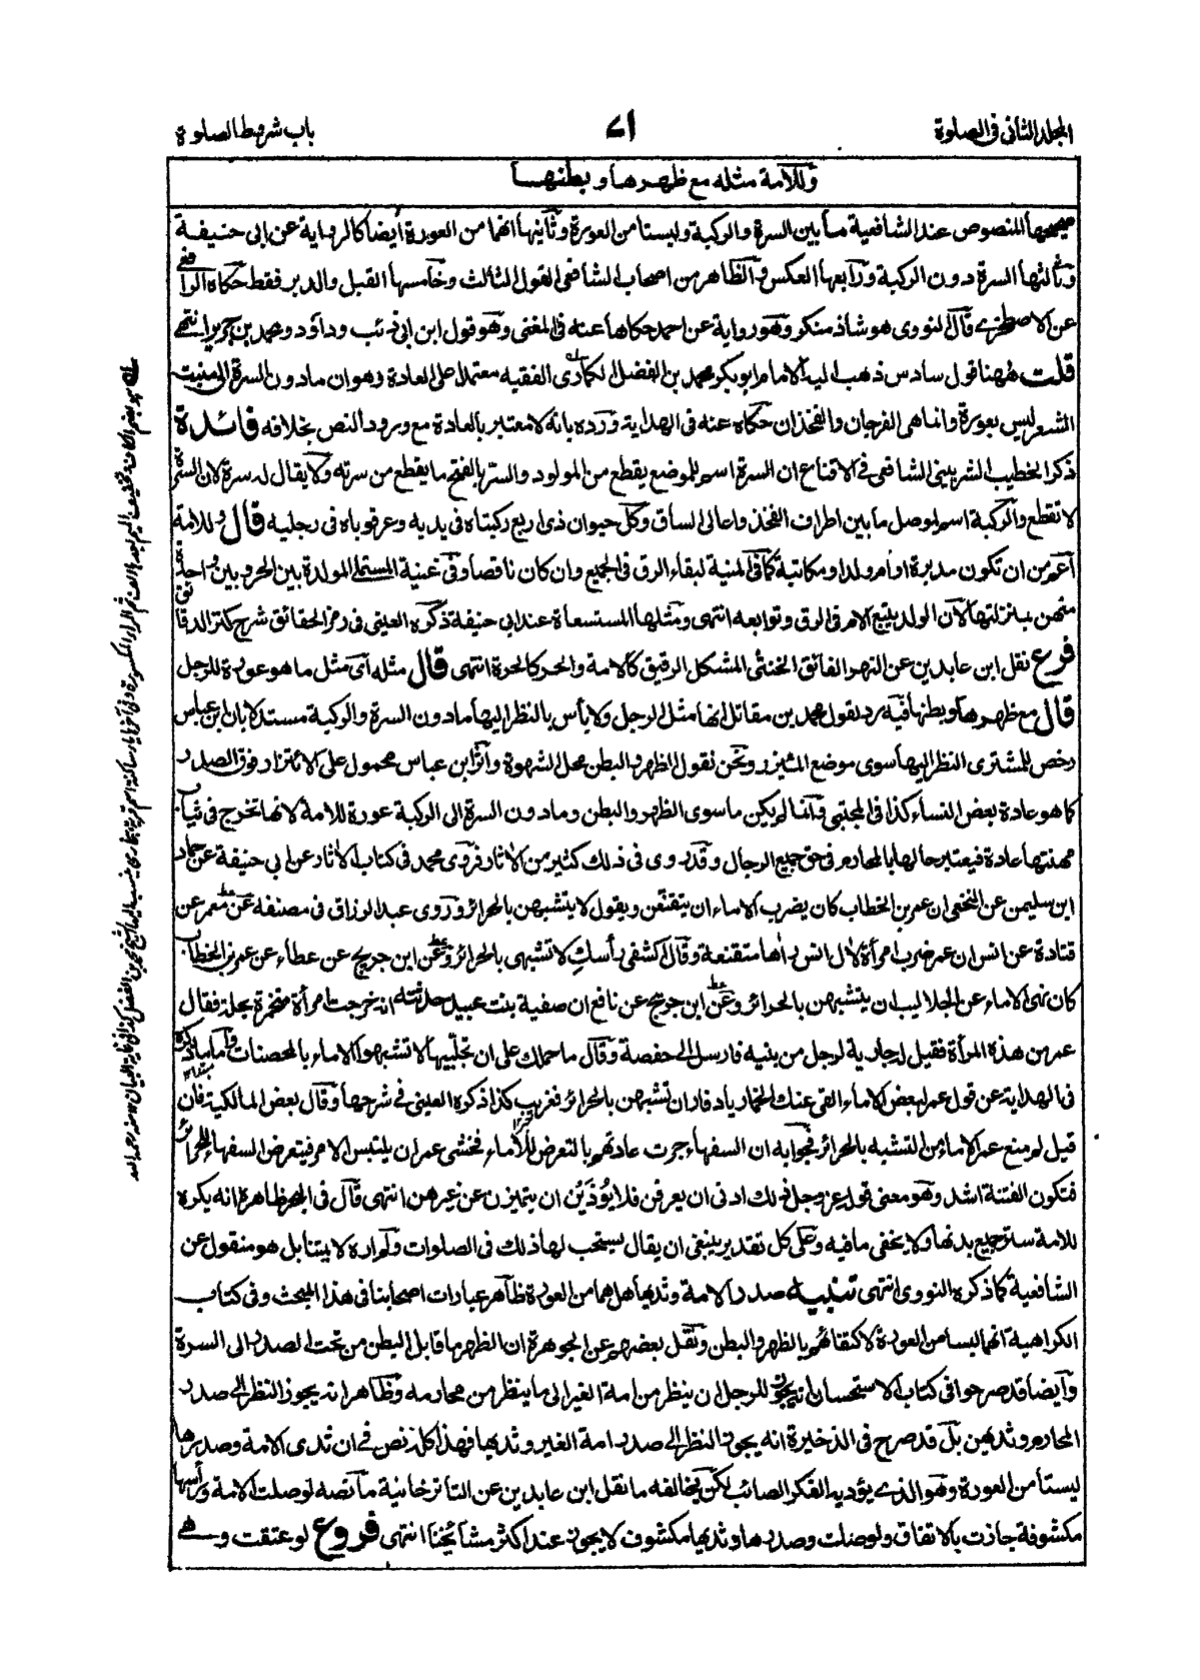 المجلد الثانی فی الصلوة
٧١
باب شروط الصلوة
وللامة مثله مع ظهرها وبطنها
المنصوص عند الشافعية ما بين السرة والركبة وليستا من العورة وثانيها انهما من العورة ايضا كالرواية عن ابی حنيفة
وثالثها السرة دون الركبة ورابعها العكس والظاهر من اصحاب الشافعی القول الثالث وخامسها القبل والدبر فقط حكاه الرافعی
عن الاصطخری قال النووی هو شاذ منكر وهو رواية عن احمد حكاها عنه فی المغنی وهو قول ابن ابی ذئب وداؤد ومحمد بن جرير انتهی
قلت ههنا قول سادس ذهب اليه الامام ابو بكر محمد بن الفضل الكماری الفقيه معتمدا علی العادة وهو ان ما دون السرة الی منبت
الشعر ليس بعورة وانما هی الفرجان والفخذان حكاه عنه فی الهداية ورده بانه لا معتبر بالعادة مع ورود النص بخلافه فائدة
ذكر الخطيب الشربينی الشافعی فی الاقناع ان السرة اسم لموضع يقطع من المولود والسر بالفتح ما يقطع من سرته ولا يقال له سرة لان السرة
لا تقطع والركبة اسم لموصل ما بين اطراف الفخذ واعالی الساق وكل حيوان ذی اربع ركبتاه فی يديه وعرقوباه فی رجليه قال وللامة
اعم من ان تكون مدبرة او ام ولد او مكاتبة كما فی المنية لبقاء الرق فی الجميع وان كان ناقصا وفی غنية المستملی المولدة بين الحر وبين احد
منهن بمنزلتها لان الولد يتبع الام فی الرق وتوابعه انتهی ومثلها المستسعاة عند ابی حنيفة ذكره العينی فی رمز الحقائق شرح كنز الدقائق
فرع نقل ابن عابدين عن النهر الفائق الخنثی المشكل الرقيق كالامة والحر كالحرة انتهی قال مثله ای مثل ما هو عورة للرجل
قال مع ظهرها وبطنها فيه رد لقول محمد بن مقاتل انها مثل الرجل ولا بأس بالنظر اليها ما دون السرة والركبة مستدلا بان ابن عباس
رخص للمشتری النظر اليها سوی موضع المئزر ونحن نقول الظهر والبطن محل الشهوة واثر ابن عباس محمول علی الائتزار فوق الصدر
كما هو عادة بعض النساء كذا فی المجتبی وانما لم يكن ما سوی الظهر والبطن وما دون السرة الی الركبة عورة للامة لانها تخرج فی ثياب
مهنتها عادة فيعتبر حالها بالمحارم فی حق جميع الرجال وقد روی فی ذلك كثير من الاثار فروی محمد فی كتاب الاثار عن ابی حنيفة عن حماد
ابن سليمن عن النخعی ان عمر بن الخطاب كان يضرب الاماء ان يتقنعن ويقول لا يتشبهن بالحرائر وروی عبد الرزاق فی مصنفه عن معمر عن
قتادة عن انس ان عمر ضرب امرأة لال انس راٰها متقنعة وقال اكشفی رأسك لا تشبهی بالحرائر وعن ابن جريج عن عطاء عن عمر بن الخطاب
كان نهی الاماء عن الجلابيب ان يتشبهن بالحرائر وعن ابن جريج عن نافع ان صفية بنت عبيد حدثته انه خرجت امرأة مختمرة بجلة فقال
عمر من هذه المرأة فقيل لجارية لرجل من بنيه فارسل الی حفصة وقال ما حملك علی ان تجلببيها لا تشبهوا الاماء بالمحصنات واما ما ذكره
فی الهداية عن قول عمر لبعض الاماء القی عنك الخمار يا دفار ان تشبهن بالحرائر فغريب كذا ذكره العينی فی شرحها وقال بعض المالكية فان
قيل لم منع عمر الاماء من التشبه بالحرائر فجوابه ان السفهاء جرت عادتهم بالتعرض للاماء فخشی عمر ان يلتبس الامر فيتعرض السفهاء للحرائر
فتكون الفتنة اشد وهو معنی قوله عز وجل ذلك ادنی ان يعرفن فلا يؤذين ان يتميزن عن غيرهن انتهی قال فی البحر ظاهره انه يكره
للامة ستر جميع بدنها ولا يخفی ما فيه وعلی كل تقدير ينبغی ان يقال يستحب لها ذلك فی الصلوات ولم اره لائمتنا بل هو منقول عن
الشافعية كما ذكره النووی انتهی تنبيه صدر الامة وثديها هل هما من العورة ظاهر عبارات اصحابنا فی هذا المبحث وفی كتاب
الكراهية انهما ليسا من العورة لاكتفائهم بالظهر والبطن ونقل بعضهم عن الجوهرة ان الظهر ما قابل البطن من تحت الصدر الی السرة
وايضا قد صرحوا فی كتاب الاستحسان انه يجوز للرجل ان ينظر من امة الغير الی ما ينظر من محارمه وظاهر انه يجوز النظر الی صدر
المحارم وثديهن بل قد صرح فی الذخيرة انه يجوز النظر الی صدر امة الغير وثديها فهذا كله نص فی ان ثدی الامة وصدرها
ليستا من العورة وهو الذی يؤديه الفكر الصائب لكن يخالفه ما نقل ابن عابدين عن التاترخانية ما نصه لو صلت الامة ورأسها
مكشوفة جازت بالاتفاق ولو صلت وصدرها وثديها مكشوف لا يجوز عند اكثر مشائخنا انتهی فروع لو عتقت وهی